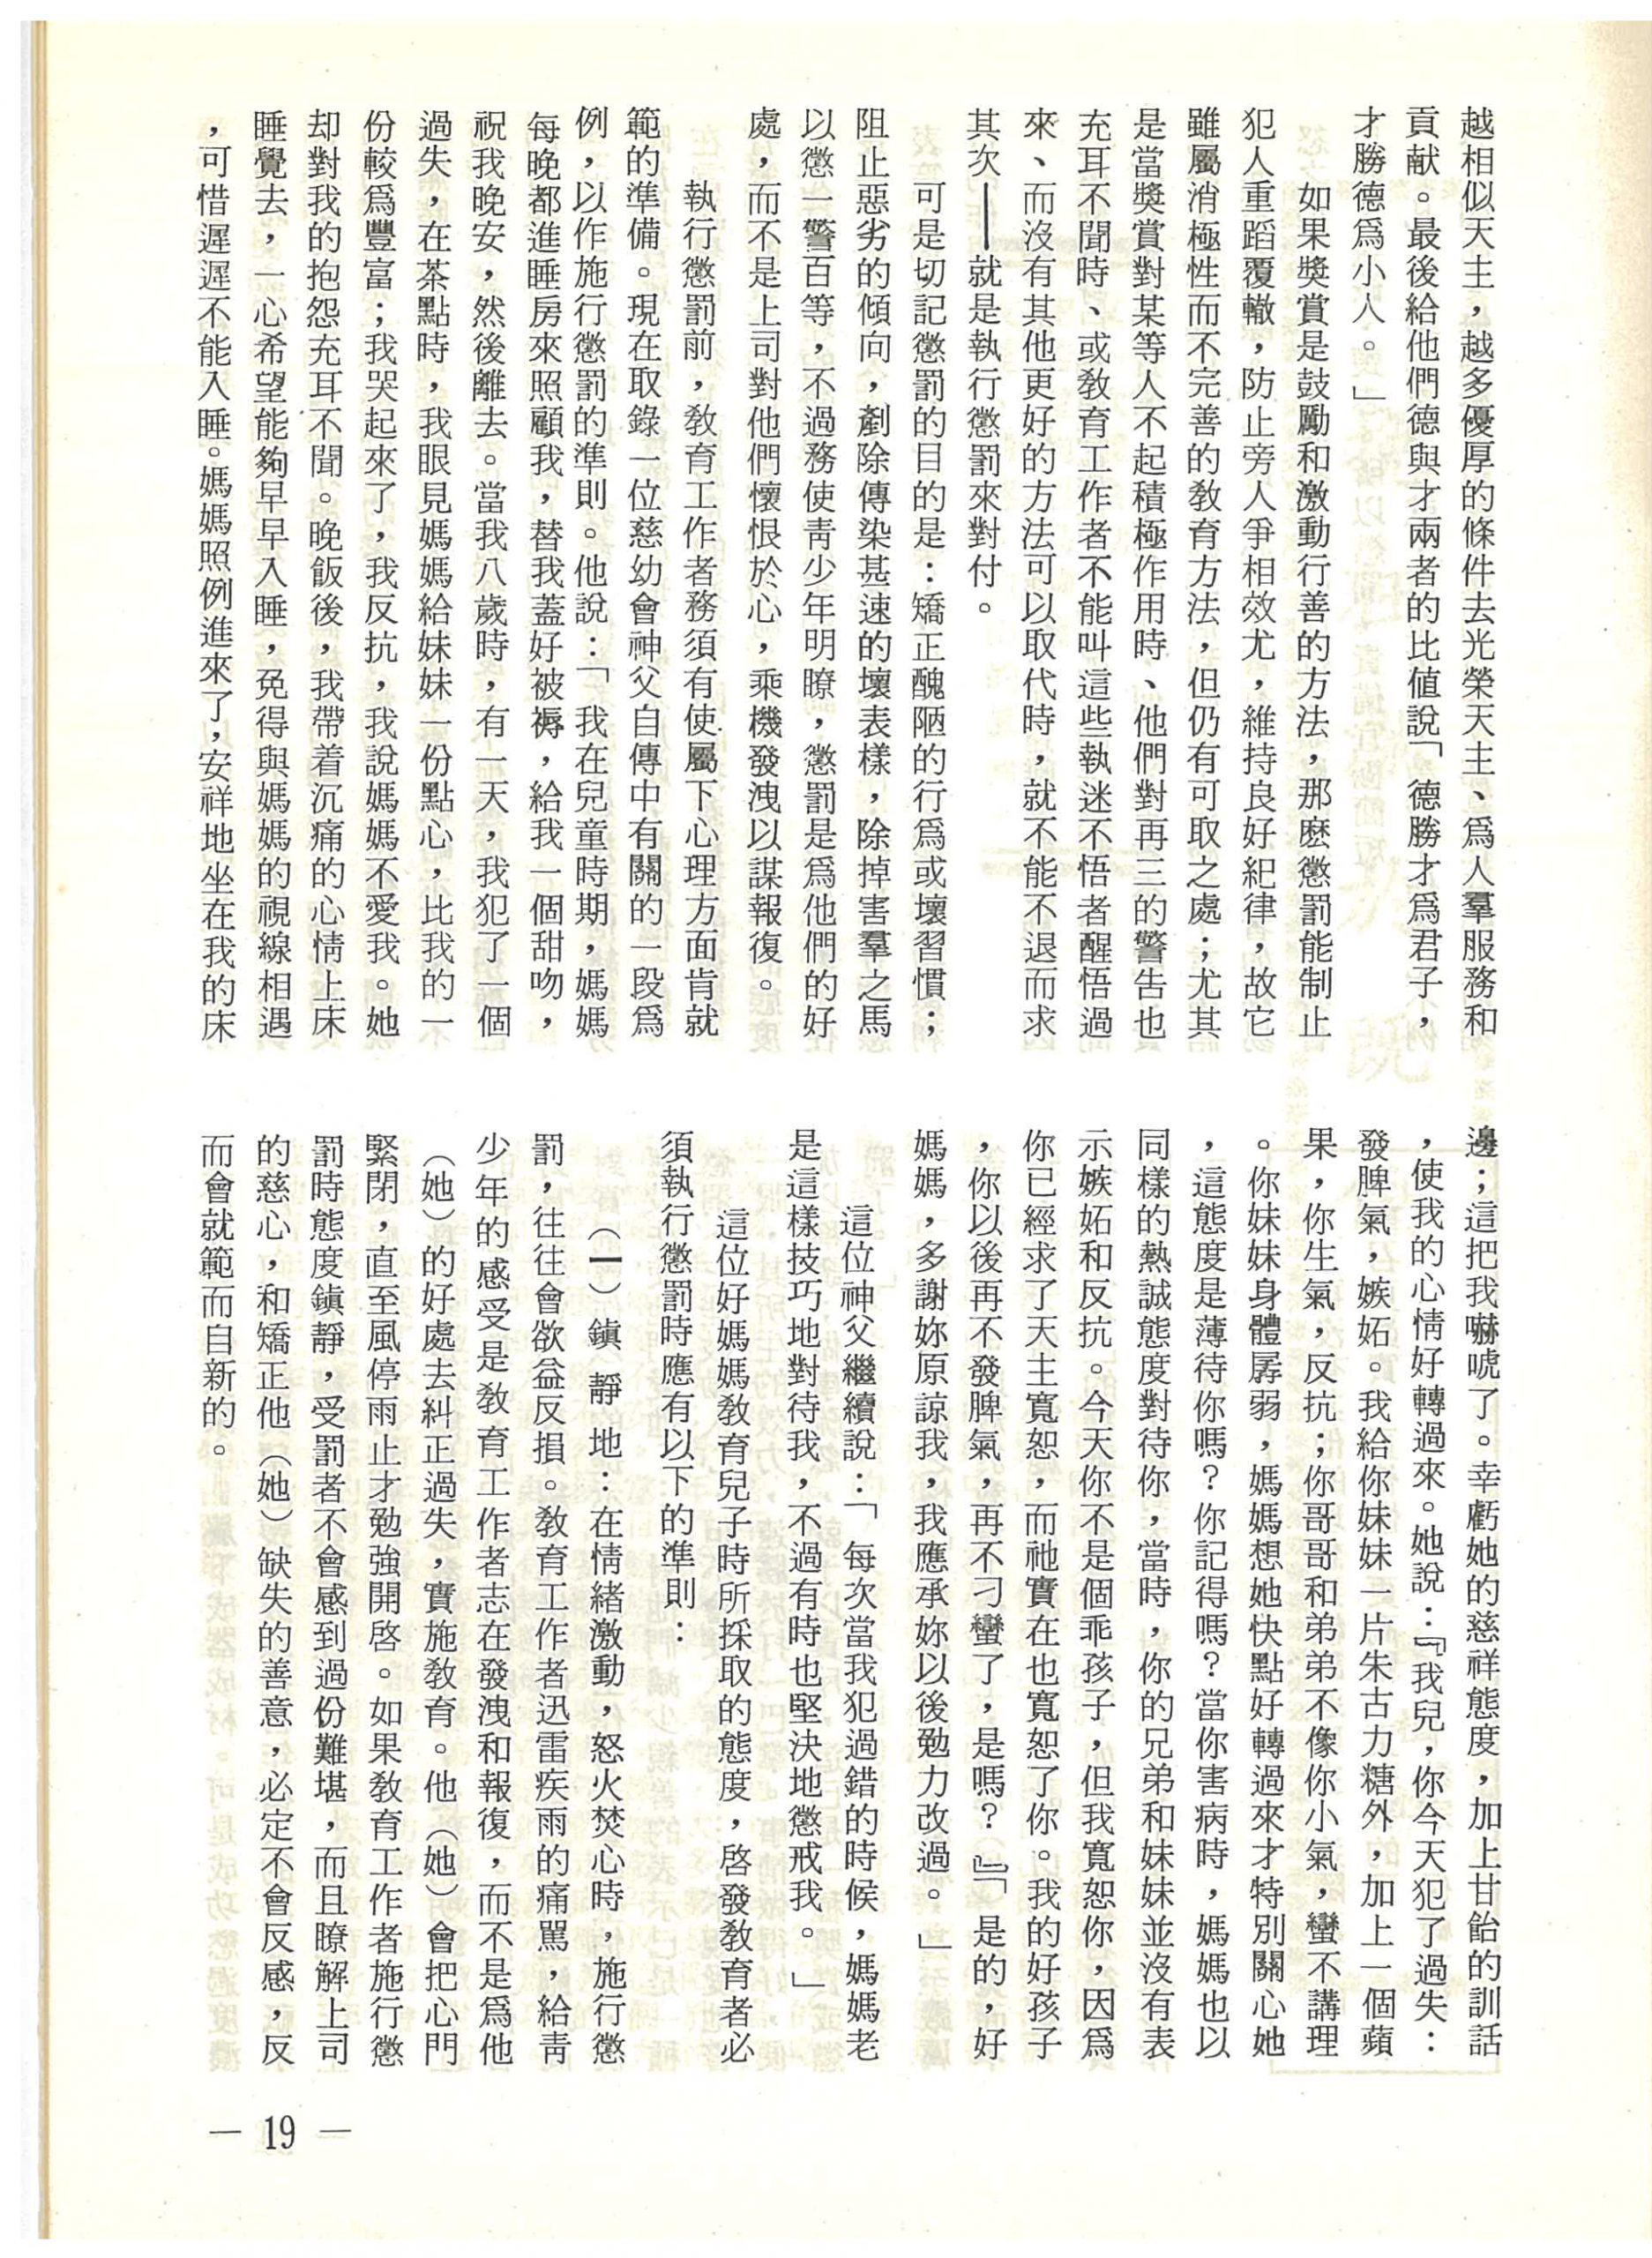 越相似天主，越多優厚的條件去光榮天主、爲人羣服務和
貢献。最後給他們德與才兩者的比値說「德勝才爲君子，
才勝德爲小人。」
如果獎賞是鼓勵和激動行善的方法，那麽懲罰能制止
犯人重蹈覆轍，防止旁人爭相效尤，維持良好紀律，故它
雖屬消極性而不完善的敎育方法，但仍有可取之處；尤其
是當獎賞對某等人不起積極作用時、他們對再三的警告也
充耳不聞時、或敎育工作者不能叫這些執迷不悟者醒悟過
來、而沒有其他更好的方法可以取代時，就不能不退而求
其次——就是執行懲罰來對付。
可是切記懲罰的目的是：矯正醜陋的行爲或壞習慣；
阻止惡劣的傾向，剷除傳染甚速的壞表樣，除掉害羣之馬
以懲一警百等，不過務使靑少年明瞭，懲罰是爲他們的好
處，而不是上司對他們懷恨於心，乘機發洩以謀報復。
執行懲罰前，敎育工作者務須有使屬下心理方面肯就
範的準備。現在取錄一位慈幼會神父自傳中有關的一段爲
例，以作施行懲罰的準則。他說：「我在兒童時期，媽媽
每晚都進睡房來照顧我，替我蓋好被褥，給我一個甜吻，
祝我晚安，然後離去。當我八歲時，有一天，我犯了一個
過失，在茶點時，我眼見媽媽給妹妹一份點心，比我的一
份較爲豐富；我哭起來了，我反抗，我說媽媽不愛我。她
却對我的抱怨充耳不聞。晚飯後，我帶着沉痛的心情上床
睡覺去，一心希望能夠早早入睡，免得與媽媽的視線相遇
，可惜遲遲不能入睡。媽媽照例進來了，安祥地坐在我的床
邊；這把我嚇唬了。幸虧她的慈祥態度，加上甘飴的訓話
，使我的心情好轉過來。她說：『我兒，你今天犯了過失：
發脾氣，嫉妬。我給你妹妹一片朱古力糖外，加上一個蘋
果，你生氣，反抗；你哥哥和弟弟不像你小氣，蠻不講理
。你妹妹身體孱弱，媽媽想她快點好轉過來才特別關心她
，這態度是薄待你嗎？你記得嗎？當你害病時，媽媽也以
同樣的熱誠態度對待你，當時，你的兄弟和妹妹並沒有表
示嫉妬和反抗。今天你不是個乖孩子，但我寬恕你，因爲
你已經求了天主寬恕，而祂實在也寬恕了你。我的好孩子
，你以後再不發脾氣，再不刁蠻了，是嗎？』「是的，好
媽媽，多謝妳原諒我，我應承妳以後勉力改過。」
這位神父繼續說：「每次當我犯過錯的時候，媽媽老
是這樣技巧地對待我，不過有時也堅決地懲戒我。」
這位好媽媽敎育兒子時所採取的態度，啓發敎育者必
須執行懲罰時應有以下的準則：
（一）鎭靜地：在情緒激動，怒火焚心時，施行懲
罰，往往會欲益反損。敎育工作者迅雷疾雨的痛駡，給靑
少年的感受是敎育工作者志在發洩和報復，而不是爲他
（她）的好處去糾正過失，實施敎育。他（她）會把心門
緊閉，直至風停雨止才勉強開啓。如果敎育工作者施行懲
罰時態度鎭靜，受罰者不會感到過份難堪，而且瞭解上司
的慈心，和矯正他（她）缺失的善意，必定不會反感，反
而會就範而自新的。
— 19 —